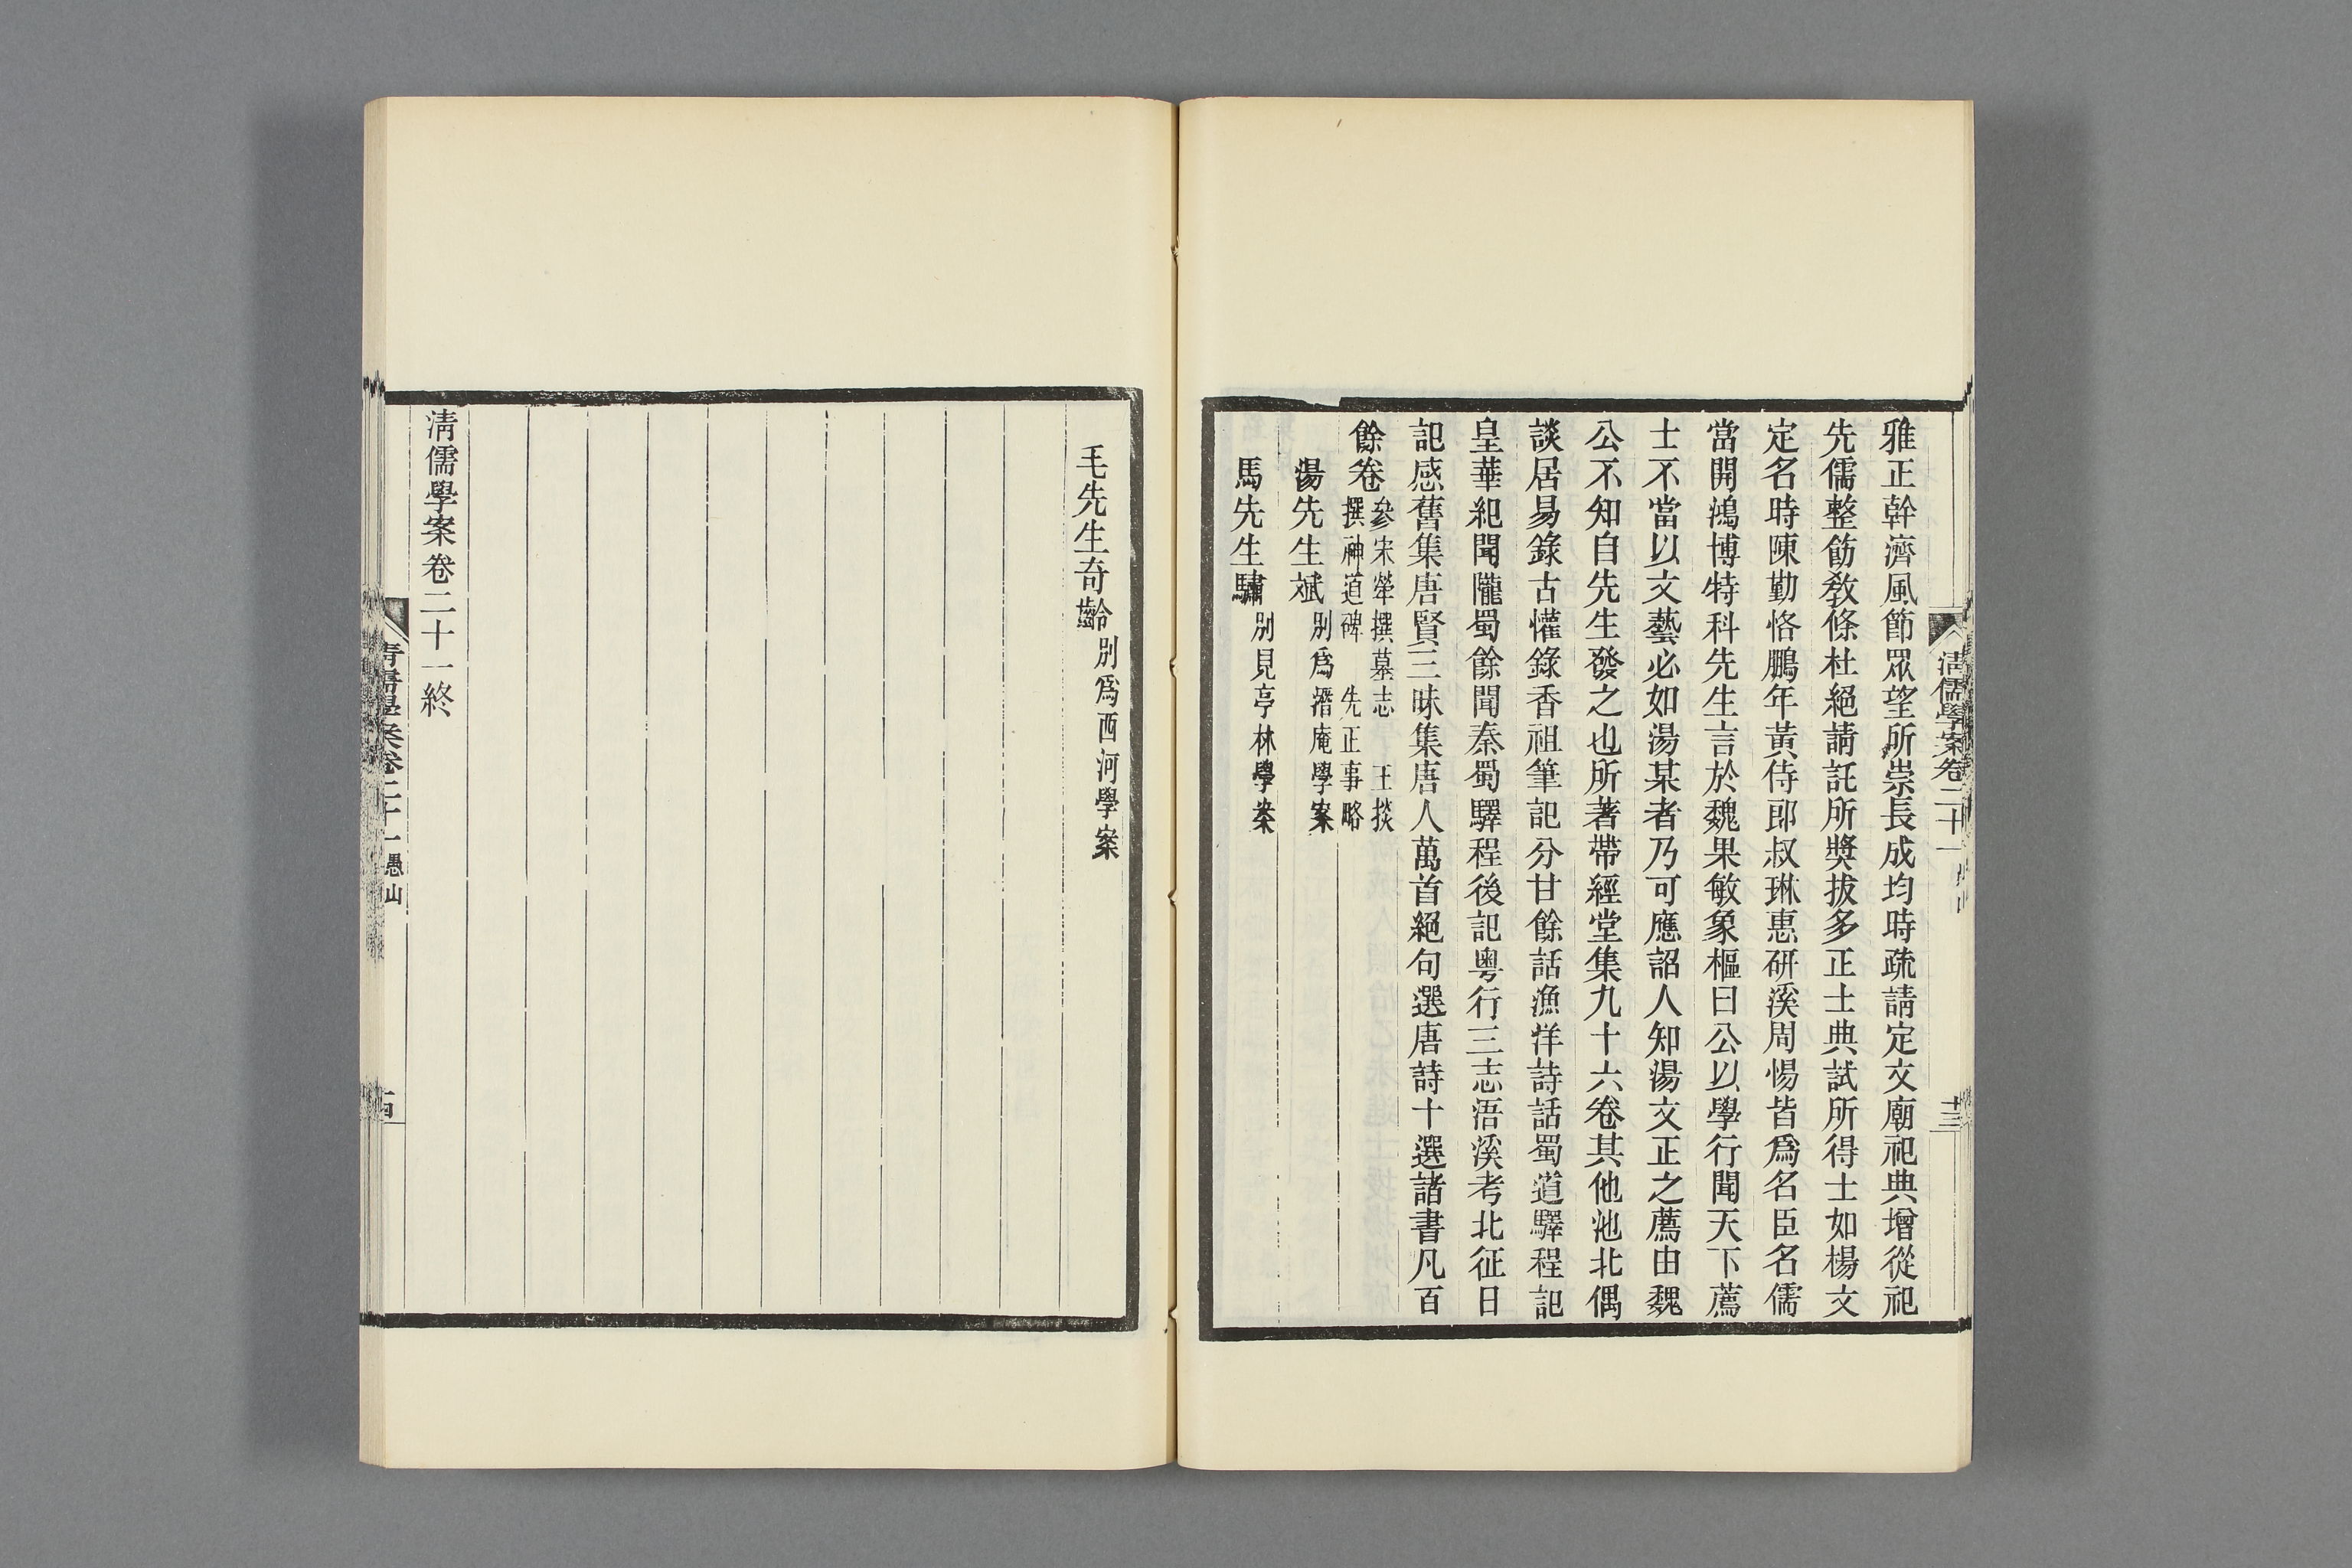 清儒學案卷二十一
十三
雅正幹濟風節眾望所崇長成均時疏請定文廟祀典增從祀
先儒整飭敎條杜絕請託所獎拔多正士典試所得士如楊文
定名時陳勤恪鵬年黃侍郎叔琳惠研溪周惕皆爲名臣名儒
當開鴻博特科先生言於魏果敏象樞曰公以學行聞天下薦
士不當以文藝必如湯某者乃可應詔人知湯文正之薦由魏
公不知自先生發之也所著帶經堂集九十六卷其他池北偶
談居易錄古懽錄香祖筆記分甘餘話漁洋詩話蜀道驛程記
皇華紀聞隴蜀餘聞秦蜀驛程後記粵行三志浯溪考北征日
記感舊集唐賢三昧集唐人萬首絕句選唐詩十選諸書凡百
餘卷參宋犖撰墓志 王掞
撰神道碑 先正事略
湯先生斌別爲潛庵學案
馬先生驌別見亭林學案
毛先生奇齡別爲西河學案
清儒學案卷二十一終
清儒學案卷二十一 愚山
十四